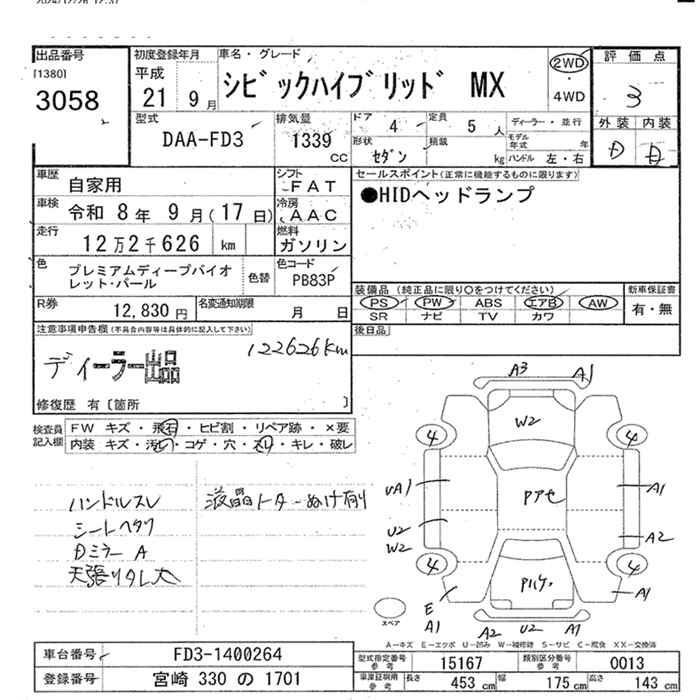 2024/12/26 12:37
出品番号
[1380]
3058
初度登録年月
平成
21 9月
車名・グレード
シビックハイブリッド MX
2WD
・
4WD
評価点
3
外装 内装
D D
型式
DAA-FD3
排気量
1339
CC
ドア
4
定員
5人
形状
セダン
積載
kg
ディーラー・並行
モデル年式 年
ハンドル 左・右
車歴
自家用
シフト
FAT
車検
令和 8年 9月(17日)
冷房
AAC
走行
12万2千626 km
燃料
ガソリン
色
プレミアムディープバイオ
レット・パール
色替
色コード
PB83P
R券
12,830円
名変通知期限
月 日
セールスポイント(正常に機能するものに限ります)
●HIDヘッドランプ
装備品(純正品に限り○をつけてください)
PS PW ABS エアB AW
SR ナビ TV カワ
新車保証書
有・無
後日品
注意事項申告欄(不具合内容等は具体的に記入して下さい)
ディーラー出品
122626km
修復歴 有〔箇所 〕
検査員記入欄
FW キズ・飛石・ヒビ割・リペア跡・×要
内装 キズ・汚れ・コゲ・穴・スレ・キレ・破レ
ハンドルスレ
シートヘタリ
Dミラー A
天張りタレ大
液晶 ぬけ有
A3 A1
W2
4 4
UA1
Pアセ
A1
U2
W2
A2
4 4
Pハゲ
E
A1
A1
A2 U2 A1
スペア
A-キズ E-エクボ U-凹み W-補修跡 S-サビ C-腐食 XX-交換済
車台番号
FD3-1400264
登録番号
宮崎 330 の 1701
型式指定番号
参考
15167
類別区分番号
参考
0013
車庫証明用
参考
長さ
453 cm
幅
175 cm
高さ
143 cm